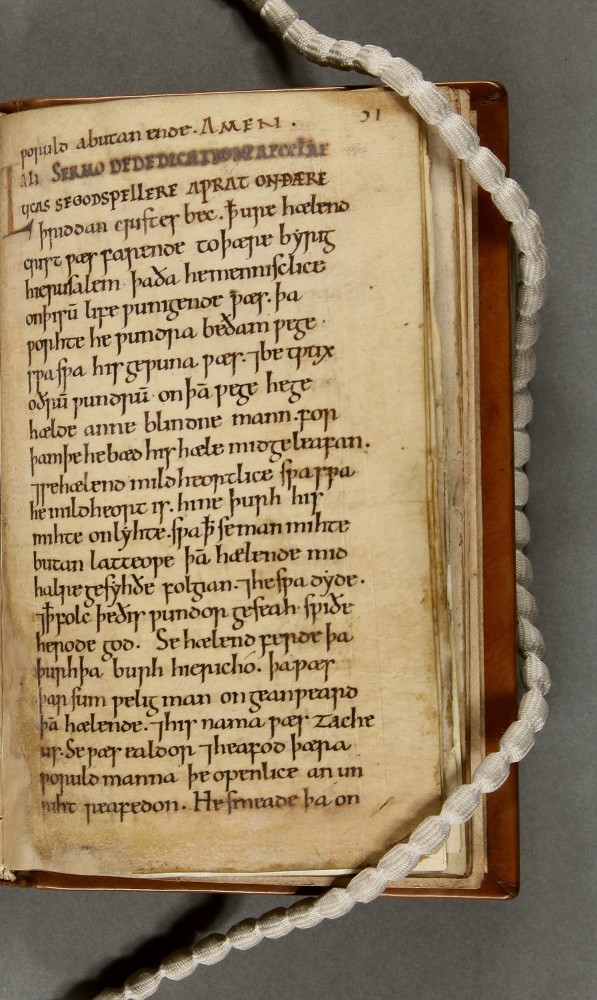 31
ƿoruld abutan ende. AMEN.
SERMO DE DEDICATIONE AECCLAE
LUCAS SE GODSPELLERE AƿRAT ON ÐÆRE
þriddan cristes bec. þ ure hælend
crist ƿæs farende to þære byrig
hierusalem þaða he mennisclice
on þisū life ƿunigende ƿæs. þa
ƿorhte he ƿundra be ðam ƿege
sƿa sƿa his geƿuna ƿæs. ⁊ betƿux
oðrū ƿundrū on þā ƿege he ge
hælde anne blindne mann. for
þam þe he bæd his hæle mid geleafan.
⁊ se hælend mildheortlice sƿa sƿa
he mildheort is. hine þurh his
mihte onlyhte. sƿa þ se man mihte
butan latteoƿe þā hælende mid
halre gesyhðe folgian. ⁊ he sƿa dyde.
⁊ þ folc þe ðis ƿundor geseah sƿiðe
herode god. Se hælend ferde þa
þurh þa burh hiericho. þa ƿæs
þær sum ƿelig man ongeanƿeard
þā hælende. ⁊ his nama ƿæs zache
us. Se ƿæs ealdor ⁊ heafod þæra
ƿoruldmanna þe oƿenlice an un
riht reafedon. He smeade þa on